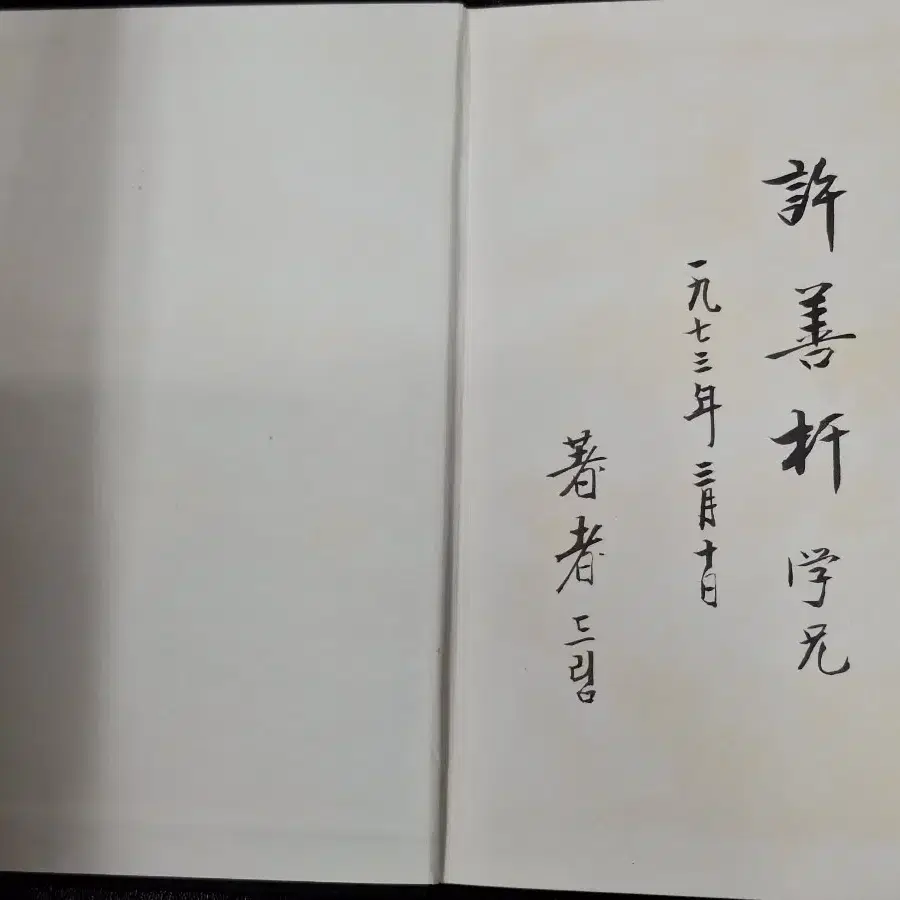 許善杆学兄
一九七三年 三月 十日
著者 드림